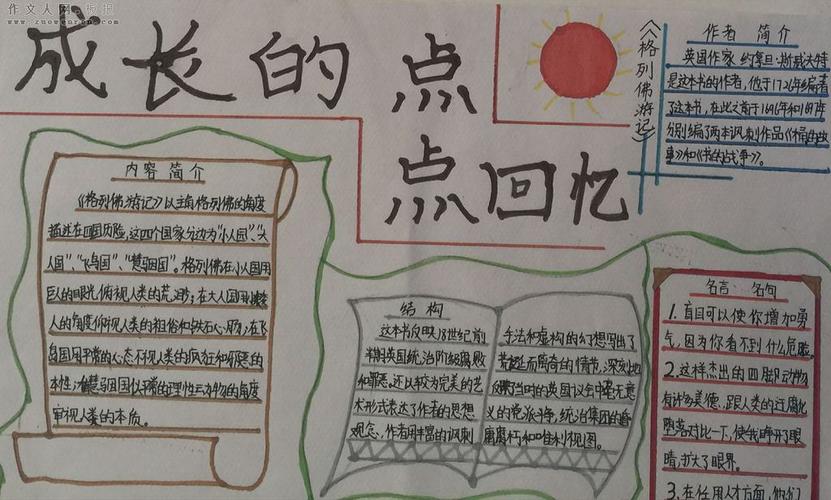 作文人网
www.zuowenren.com
成长的点
点回忆
《格列佛游记》
作者 简介
英国作家 约拿旦·斯威夫特
是这本书的作者，他于1726年编著
了这本书，在此之前于1696年和
分别编了两本讽刺作品《桶的故
事》和《书的战争》。
内容 简介
《格列佛游记》以主角格列佛的角度
描述在四国历险，这四个国家分边为“小人国”、“大
人国”、“飞岛国”、“慧骃国”。格列佛在小人国用
巨人的眼光俯视人类的荒渺；在大人国
人的角度仰视人类的粗俗和铁石心肠；在飞
岛国用平常的心态平视人类的疯狂和邪恶的
本性；
审视人类的本质。
结 构
这本书反映18世纪前
半期英国统治阶级腐败
和罪恶，还以较为完美的艺
术形式表达了作者的思想
观念，作者用丰富的讽刺
手法和虚构的幻想写出了
荒诞而离奇的情节，深刻地
反映了当时的英国议会中毫无意
义的党派斗争，统治集团的昏
庸腐朽和唯利视图。
名言 名句
1. 盲目可以使你增加勇
气，因为你看不到什么危险。
2. 这样杰出的四脚动物
有许多美德，跟人类的
堕落对比一下，使我睁开了眼
睛，扩大了眼界。
3. 在任用人才方面，他们